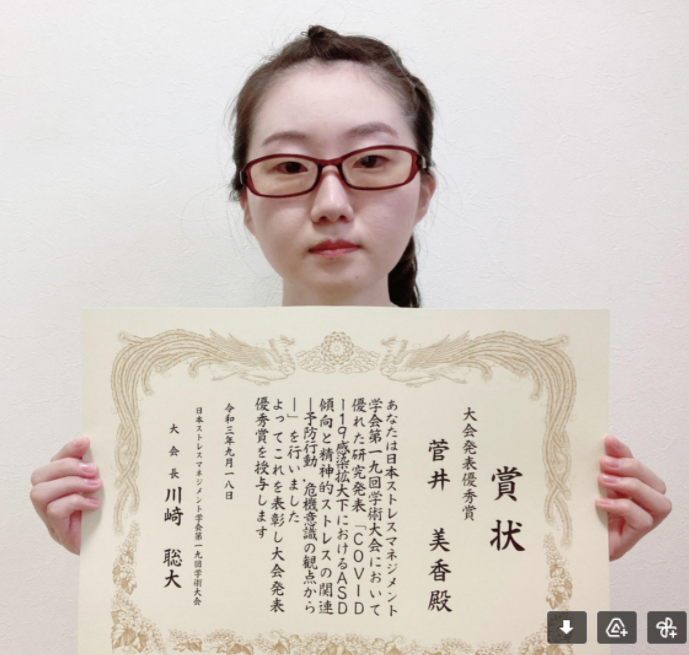 賞状
大会発表優秀賞
菅井 美香殿
あなたは日本ストレスマネジメント
学会第一九回学術大会において
優れた研究発表「COVID
ー19感染拡大下におけるASD
傾向と精神的ストレスの関連
ー予防行動 危機意識の観点から
ー」を行いました
よってこれを表彰し大会発表
優秀賞を授与します
令和三年九月一八日
日本ストレスマネジメント学会第一九回学術大会
大会長 川﨑 聡大